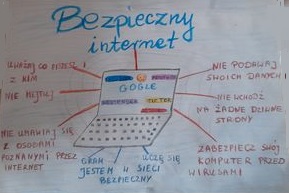 Bezpieczny
internet
UWAŻAJ CO PISZESZ
Z NIM
NIE HEJTUJ
NIE UMAWIAJ SIĘ
Z OSOBAMI
POZNANYMI PRZEZ
INTERNET
GOGLE
MESSENGER
GRAM
UCZĘ SIĘ
JESTEM W SIECI
BEZPIECZNY
NIE PODAWAJ
SWOICH DANYCH
NIE WCHODŹ
NA ŻADNE DZIWNE
STRONY
ZABEZPIECZ SWÓJ
KOMPUTER PRZED
WIRUSAMI